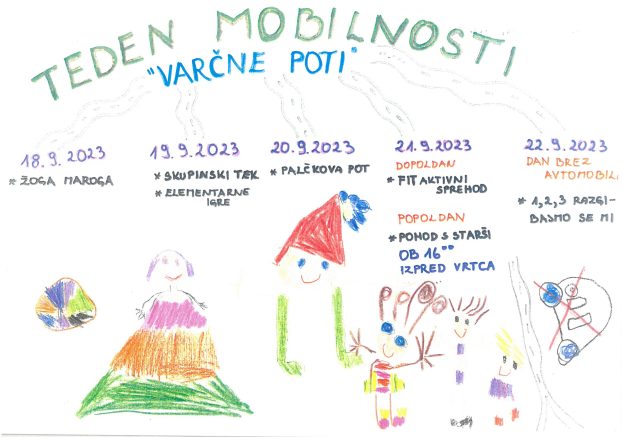 TEDEN MOBILNOSTI
"VARČNE POTI"
18.9.2023
* ŽOGA MAROGA
19.9.2023
* SKUPINSKI TEK
* ELEMENTARNE
IGRE
20.9.2023
* PALČKOVA POT
21.9.2023
DOPOLDAN
* FIT AKTIVNI
SPREHOD
POPOLDAN
* POHOD S STARŠI
OB 16⁰⁰
IZPRED VRTCA
22.9.2023
DAN BREZ
AVTOMOBIL
* 1,2,3 RAZGI-
BAJMO SE MI